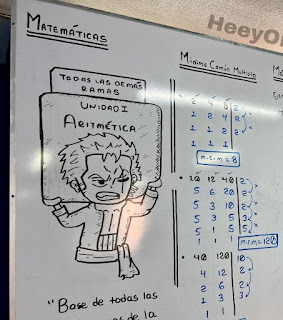 HeeyO
MATEMÁTICAS
TODAS LAS DEMAS
RAMAS
UNIDAD I
ARITMÉTICA
"Base de todas las
de la
Mínimo Común Múltiplo
2 4 8 2
1 2 4 2
1 1 2 2
1 1 1
m.c.m = 8
10 12 40 2
5 6 20 2
5 3 10 2
5 3 5 3
5 1 5 5
1 1 1
m.c.m = 120
40 120 10
4 12 2
2 6 2
1 3 3